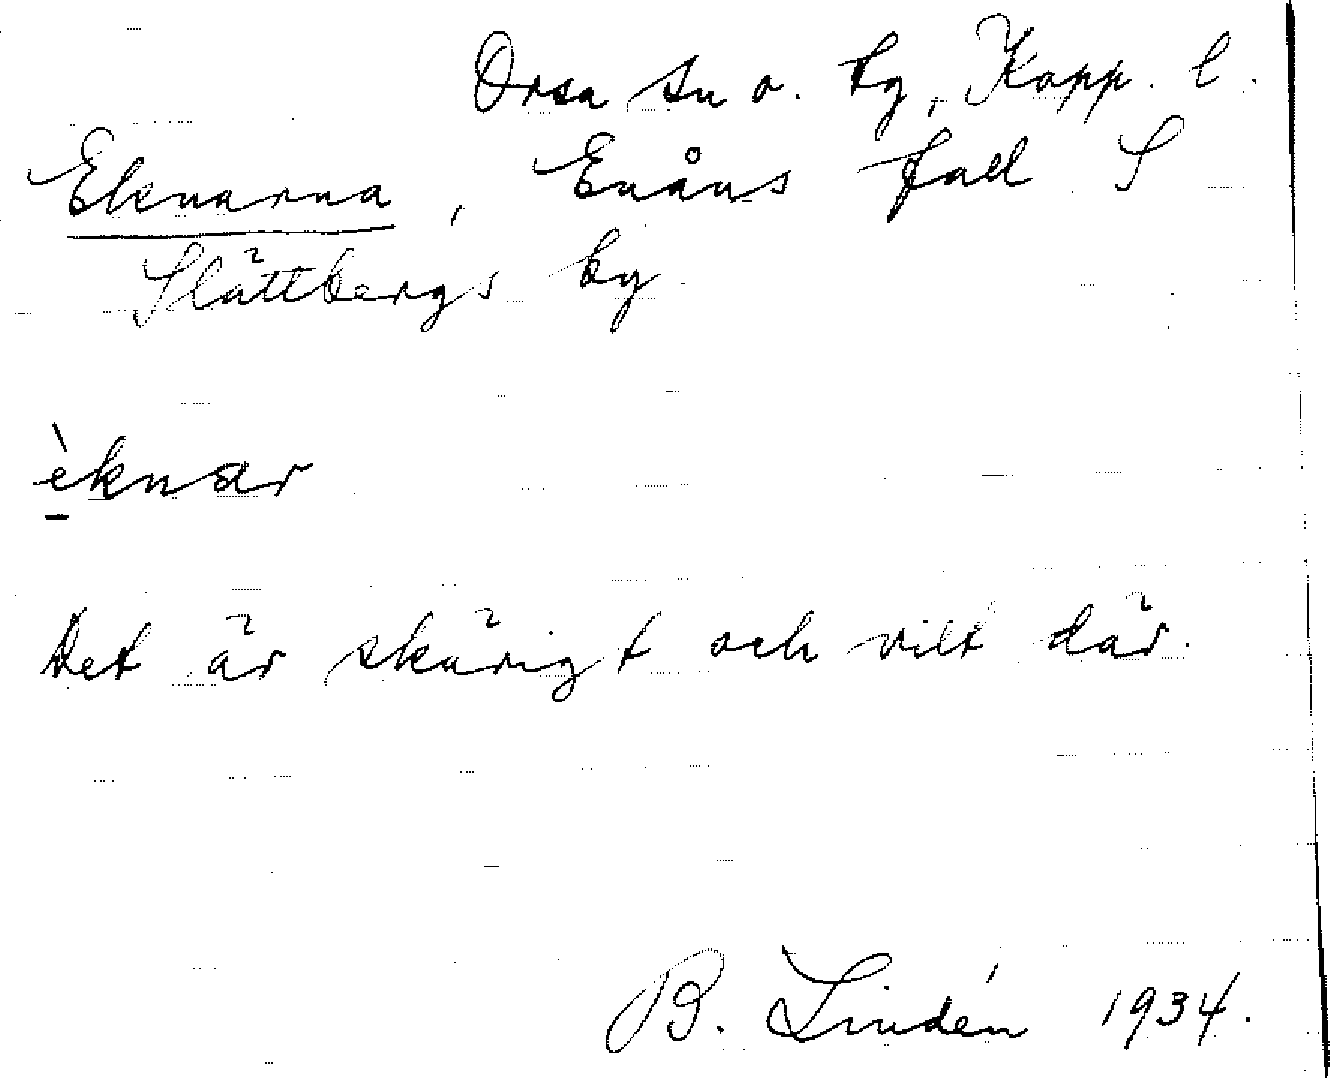 Orsa sn o. tg, Kopp. l.
Eknarna, Enåns fall S
Slättbergs by
èknar
Det är skärigt och vilt där.
B. Lindén 1934.